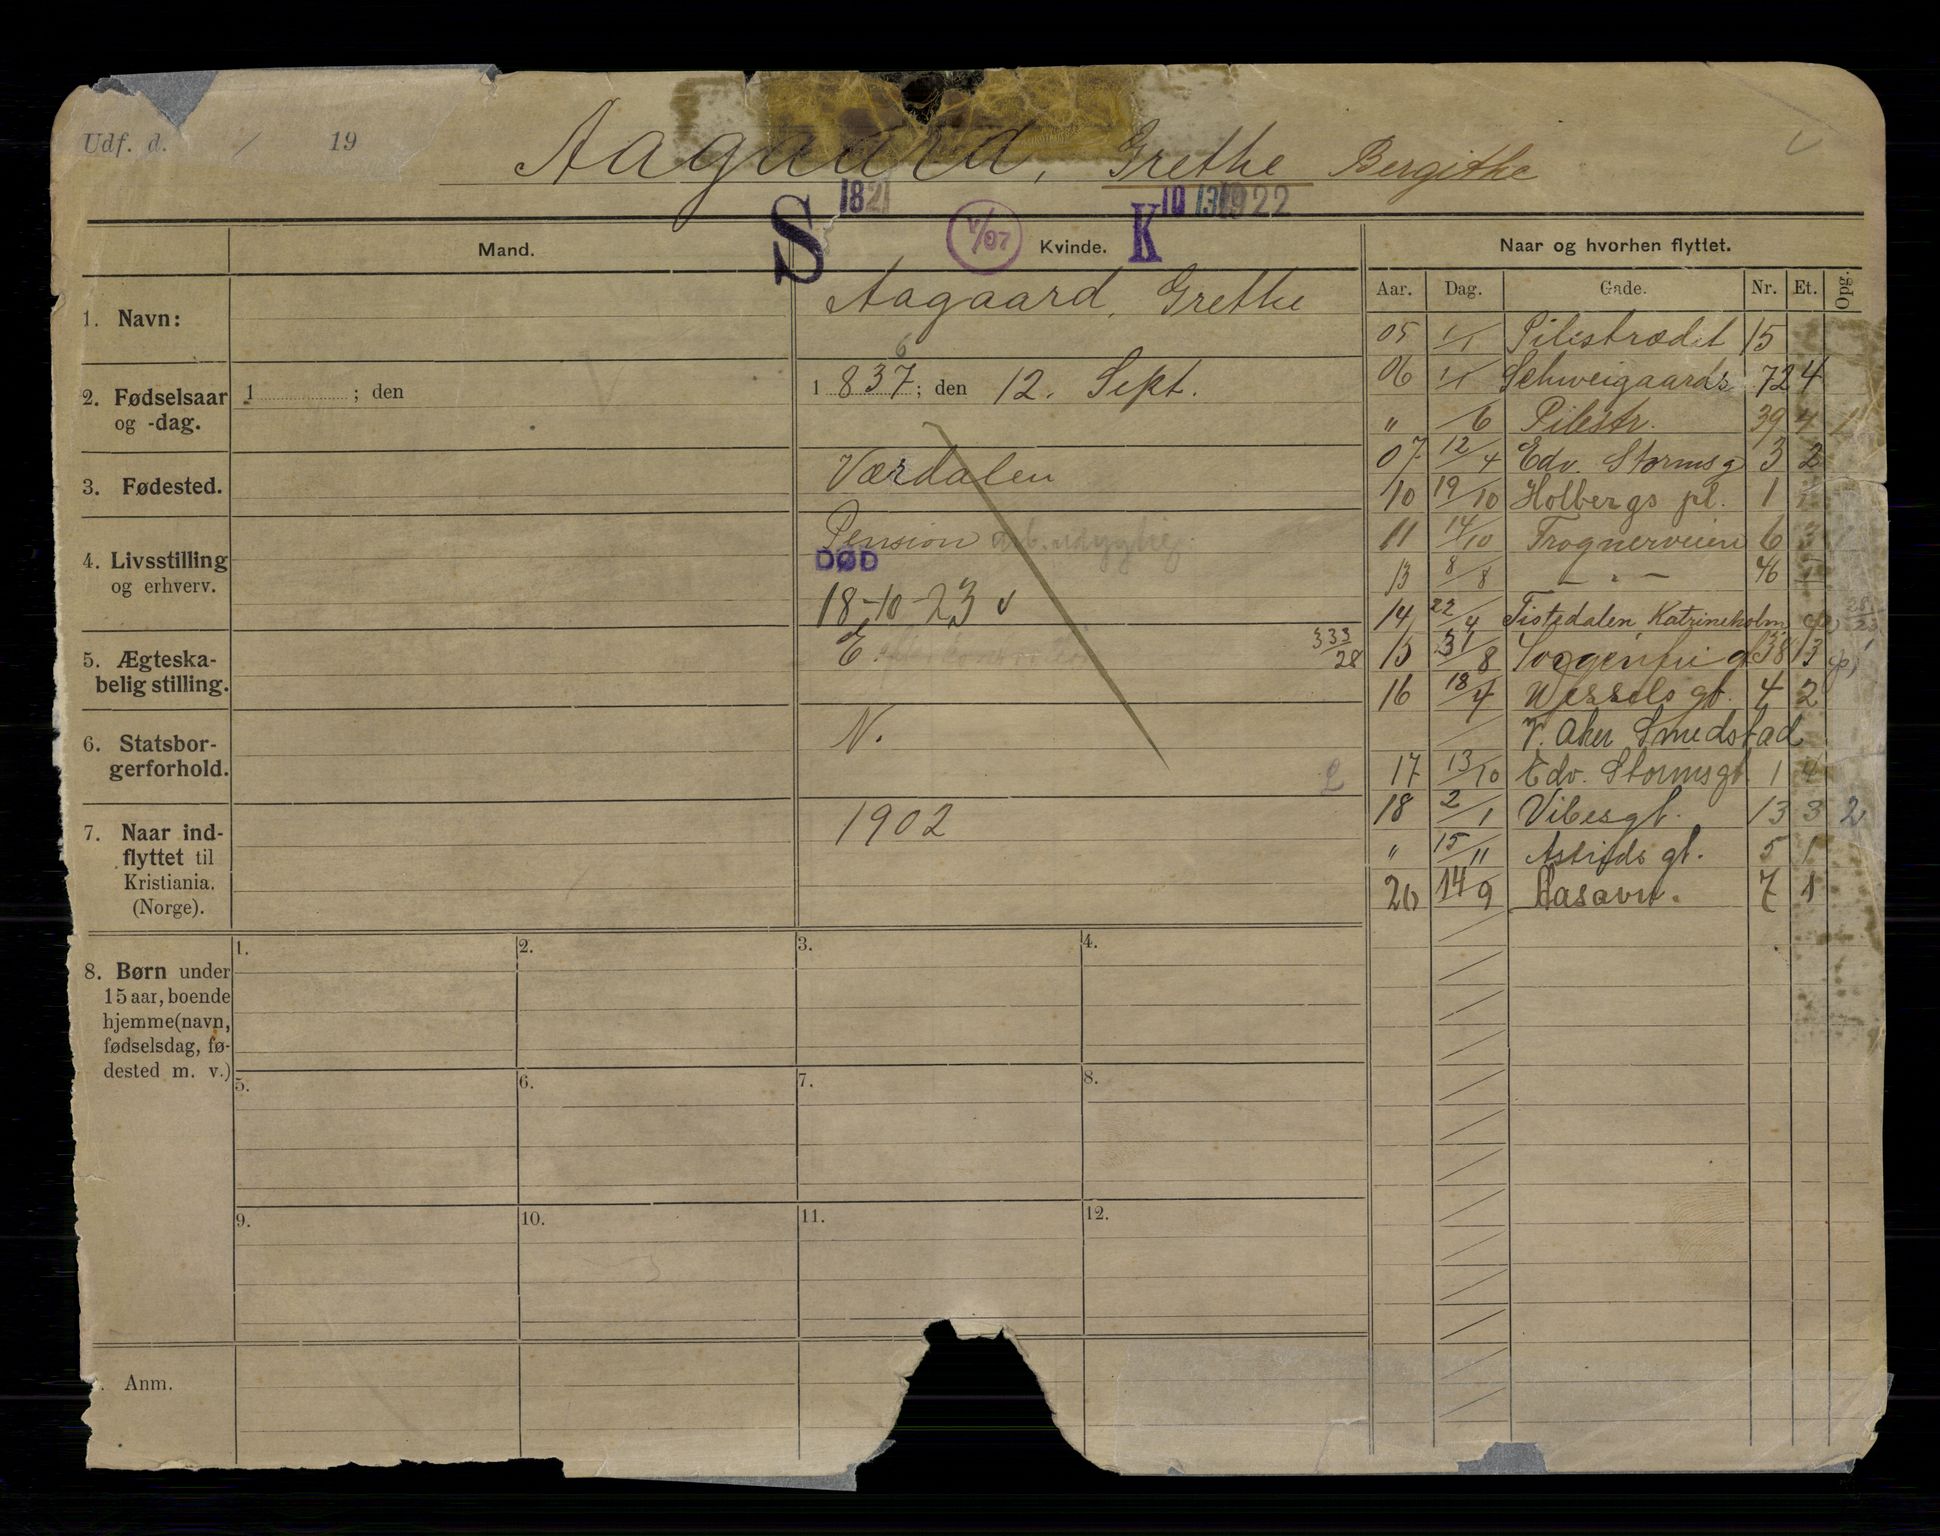 Udf. d. / 19
Aagaard, Grethe Bergithe
S 182 V/07 K 10 13 1922
Mand. Kvinde. Naar og hvorhen flyttet.
Aar. Dag. Gade. Nr. Et. Opg.
1. Navn: Aagaard, Grethe
2. Fødselsaar og -dag. 1 ; den
6
1837; den 12. Sept.
3. Fødested. Værdalen
4. Livsstilling og erhverv. Pension
DØD
18-10-23 v
5. Ægteska-
belig stilling. E.
333/28
6. Statsbor-
gerforhold. N.
7. Naar ind-
flyttet til
Kristiania.
(Norge).
1902
05 1/1 Pilestrædet 15
06 1/1 Schweigaards 72 4
" /6 Pilestr. 39 4 1
07 12/4 Edv. Stormsg 3 2
10 19/10 Holbergs pl. 1 1
11 14/10 Frognerveien 6 3
13 8/8 — " — 46 1
14 22/4 Tistedalen Katrineholm
15 31/8 Sorgenfrig 38 3
16 18/4 Wessels gt. 4 2
/ V. Aker Smedstad
17 13/10 Edv. Stormsgt. 1 4
18 2/1 Vibesgt. 13 3 2
" 15/11 Astrids gt. 5 1
20 14/9 Aasavn. 7 1
8. Børn under
15 aar, boende
hjemme (navn,
fødselsdag, fø-
dested m. v.)
1. 2. 3. 4.
5. 6. 7. 8.
9. 10. 11. 12.
Anm.